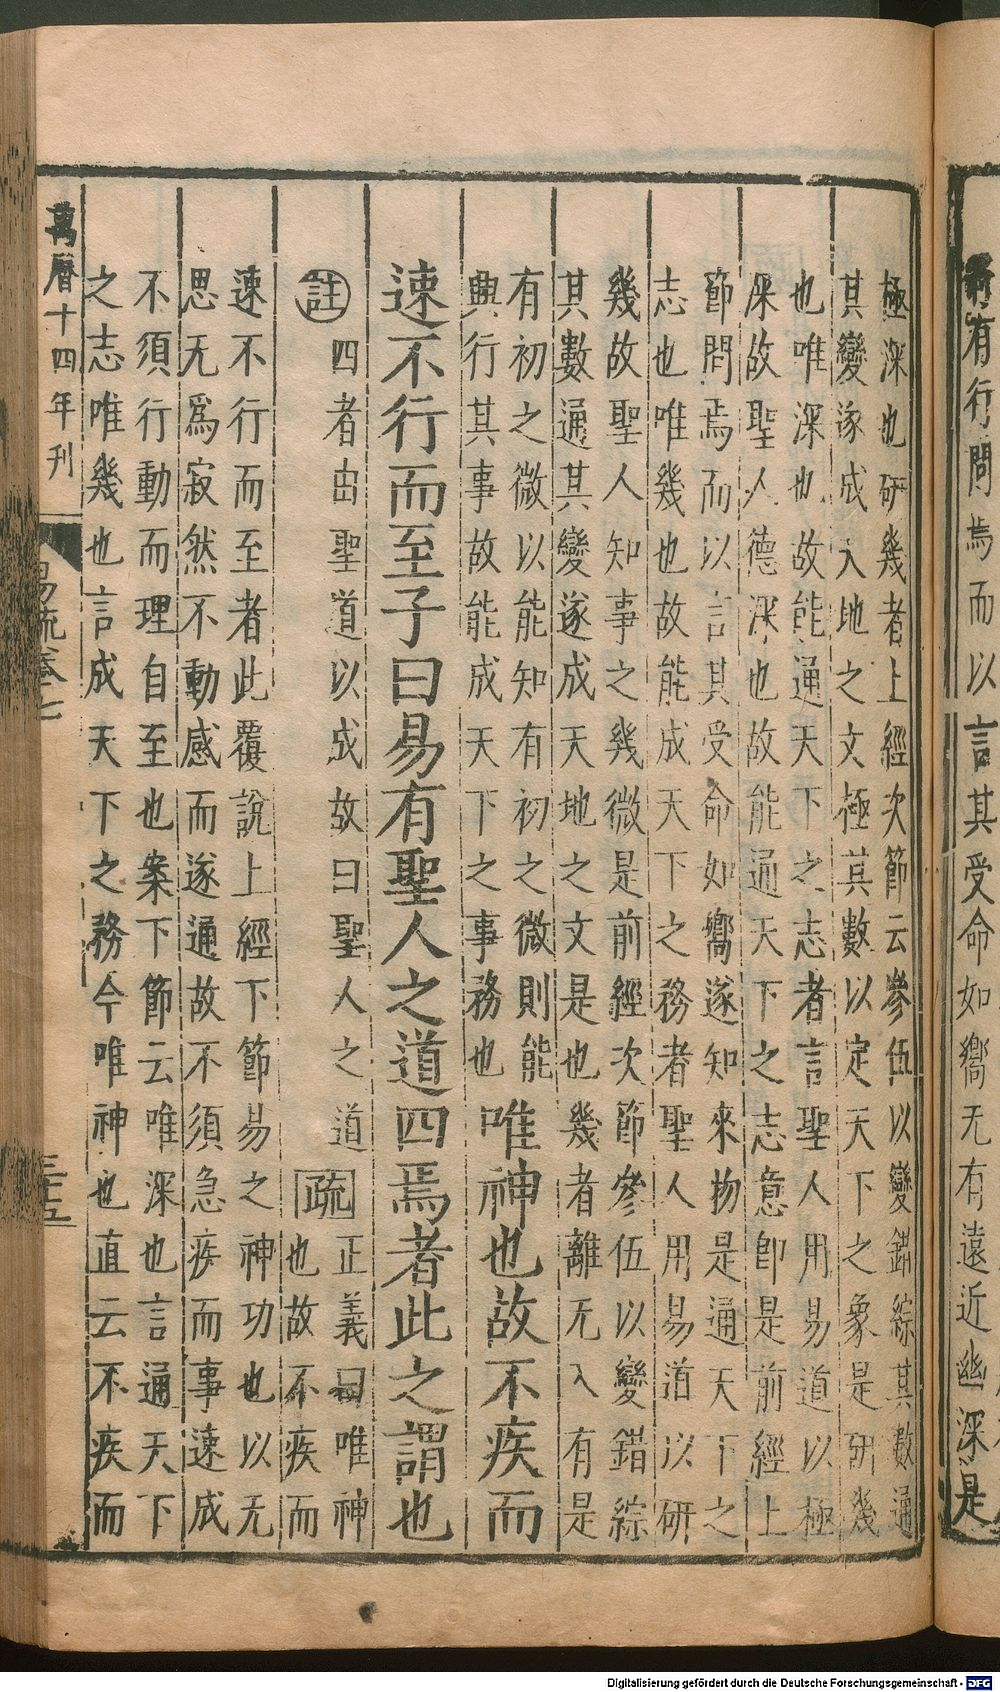 極深也研幾者上經次節云參伍以變錯綜其數通
其變遂成天地之文極其數以定天下之象是研幾
也唯深也故能通天下之志者言聖人用易道以極
深故聖人德深也故能通天下之志意即是前經上
節問焉而以言其受命如嚮遂知來物是通天下之
志也唯幾也故能成天下之務者聖人用易道以研
幾故聖人知事之幾微是前經次節參伍以變錯綜
其數通其變遂成天地之文是也幾者離无入有是
有初之微以能知有初之微則能
興行其事故能成天下之事務也
唯神也故不疾而
速不行而至子曰易有聖人之道四焉者此之謂也
註
四者由聖道以成故曰聖人之道
疏
正義曰唯神
也故不疾而
速不行而至者此覆說上經下節易之神功也以无
思无爲寂然不動感而遂通故不須急疾而事速成
不須行動而理自至也案下節云唯深也言通天下
之志唯幾也言成天下之務今唯神也直云不疾而
萬曆十四年刊
易疏卷七
三十五
有行問焉而以言其受命如嚮无有遠近幽深是
Digitalisierung gefördert durch die Deutsche Forschungsgemeinschaft - DFG